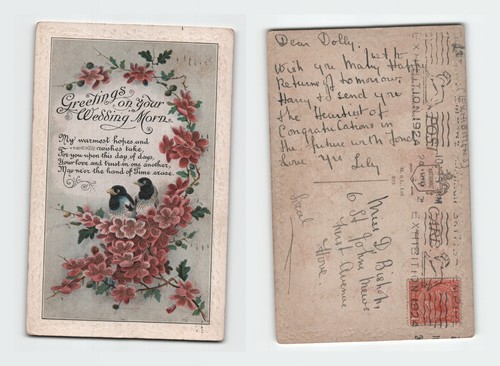 Greetings
on your
Wedding Morn.
My warmest hopes and
wishes take,
For you upon this day of days,
Your love and trust in one another,
May never the hand of Time erase.
Dear Dolly. Just
Wish you Many Happy
Returns of tomorrow
Harry & I send you
the Heartiest of
Congratulations in
the future with fond
love Yrs Lily
Miss D.
6 St Johns Mews
First Avenue
Hove.
EXHIBITION 1924
EXHIBITION 1924